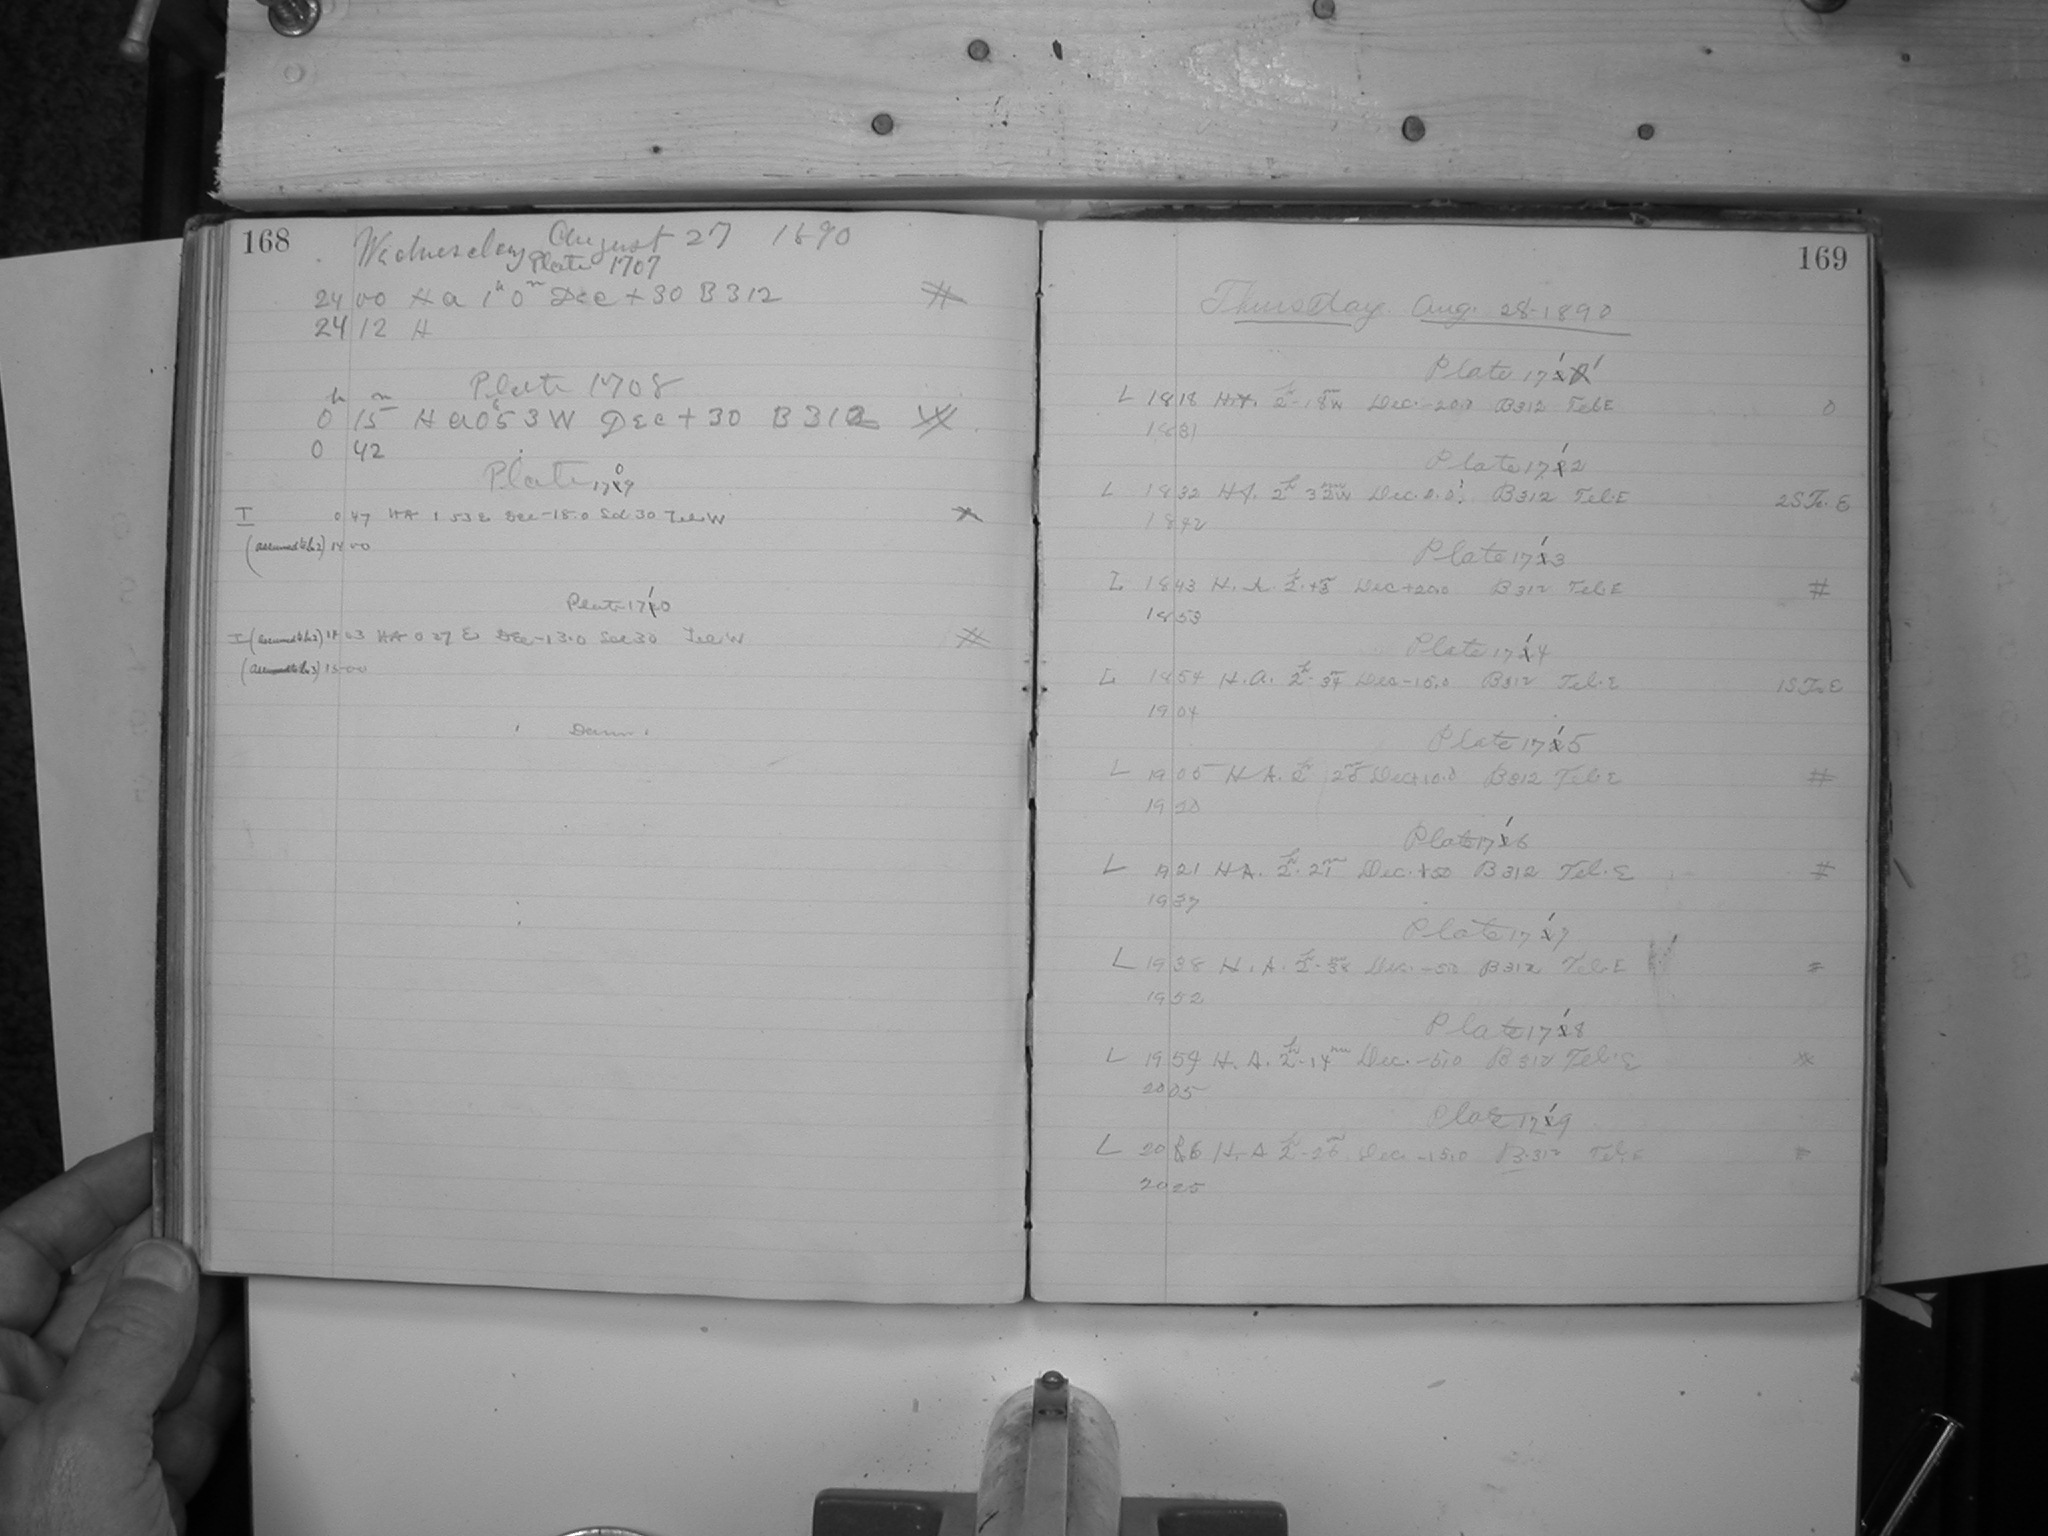 168
Wednesday August 27 1890
Plate 1707
24 00 H a 1h 0m Dec + 30 B 312
24 12 H
Plate 1708
h m
0 15 H a 0h 53 W Dec + 30 B 312
0 42
Plate 1709
I 0 47 HA 1 53 E Dec -15.0 Sol 30 Tel W
14 00
Plate 1710
I 14 03 HA 0 37 E Dec -13.0 Sol 30 Tel W
15 00
169
Thursday. Aug. 28-1890
Plate 1711
L 18 18 H.A. 2h-18m W Dec.-20.0 B312 Tel E
18 31
Plate 1712
L 18 32 HA. 2h 32m W Dec. 0.0 B312 Tel.E
18 42
Plate 1713
L 18 43 H. A. 2h.43m Dec+20.0 B312 Tel.E #
18 53
Plate 1714
L 18 54 H.A. 2h-34m Dec-15.0 B312 Tel.E
19 04
Plate 1715
L 19 05 H A. 2h 28m Dec+10.0 B312 Tel.E #
19 20
Plate 1716
L 19 21 HA. 2h. 21m Dec.+50 B312 Tel.E #
19 37
Plate 1717
L 19 38 H. A. 2h-38m Dec.-50 B312 Tel.E
19 52
Plate 1718
L 19 54 H. A. 2h-14m Dec.-5.0 B312 Tel.E
20 05
Plate 1719
L 20 H.A 2h-26m Dec -15.0 B.312 Tel.E
20 25